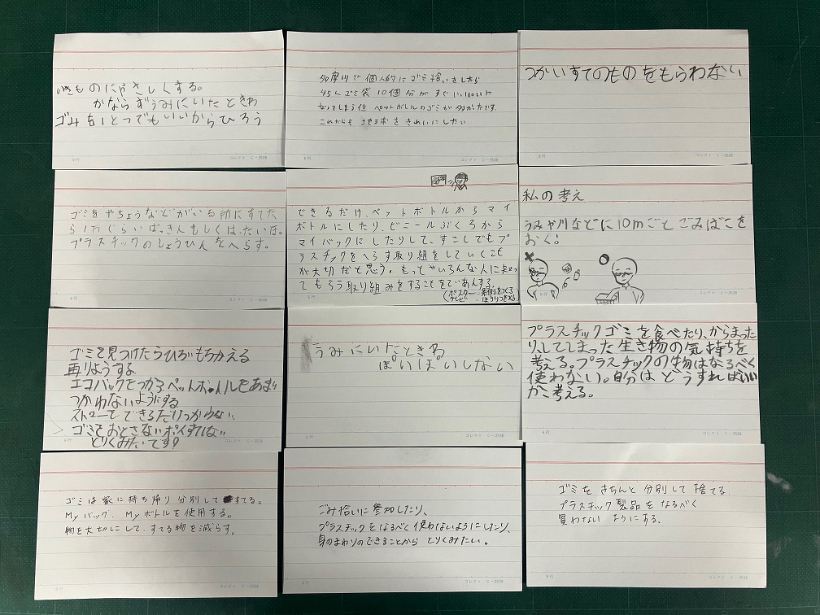 ものにやさしくする。
かならずうみにいたときわ
ゴみを1とつでもいいからひろう
個人的にゴミ拾いをしたら
45Lゴミ袋10個分がすぐに
なってしまう位 ペットボトルのゴミが
これからも地球をきれいにしたい
つかいすてのものをもらわない
ゴミをやちょうなどがいる所にすてたら
プラスチックのしょうひんをへらす。
できるだけ、ペットボトルからマイ
ボトルにしたり、ビニールぶくろから
マイバックにしたりして、すこしでもプ
ラスチックをへらす取り組をしていくこと
が大切だと思う。もっといろんな人に
てもらう取り組みをすることをていあんする。
私の考え
うみや川などに10mごとごみばこを
おく!
ゴミを見つけたらひろもちかえる
再りようすよ
エコバックをつかるペットボトルをあまり
つかわないようにする
ストローをできるだけつかわない
ゴミをおとさないポイすてしない
とりくみたいです?
うみにいたときる
ぽいぽいしない
プラスチックゴミを食べたり、からまった
り、してしまった生き物の気持ちを
考える。プラスチックの物はなるべく
使わない。自分はどうすればいい
かを考える。
ゴミは家に持ち帰り分別してすてる。
Myバッグ、Myボトルを使用する。
物を大切にして、すてる物を減らす。
ごみ拾いに参加したり、
プラスチックをなるべく使わないようにしたり、
身のまわりのできることからとりくみたい。
ゴミをきちんと分別して捨てる
プラスチック製品をなるべく
買わないようにする。